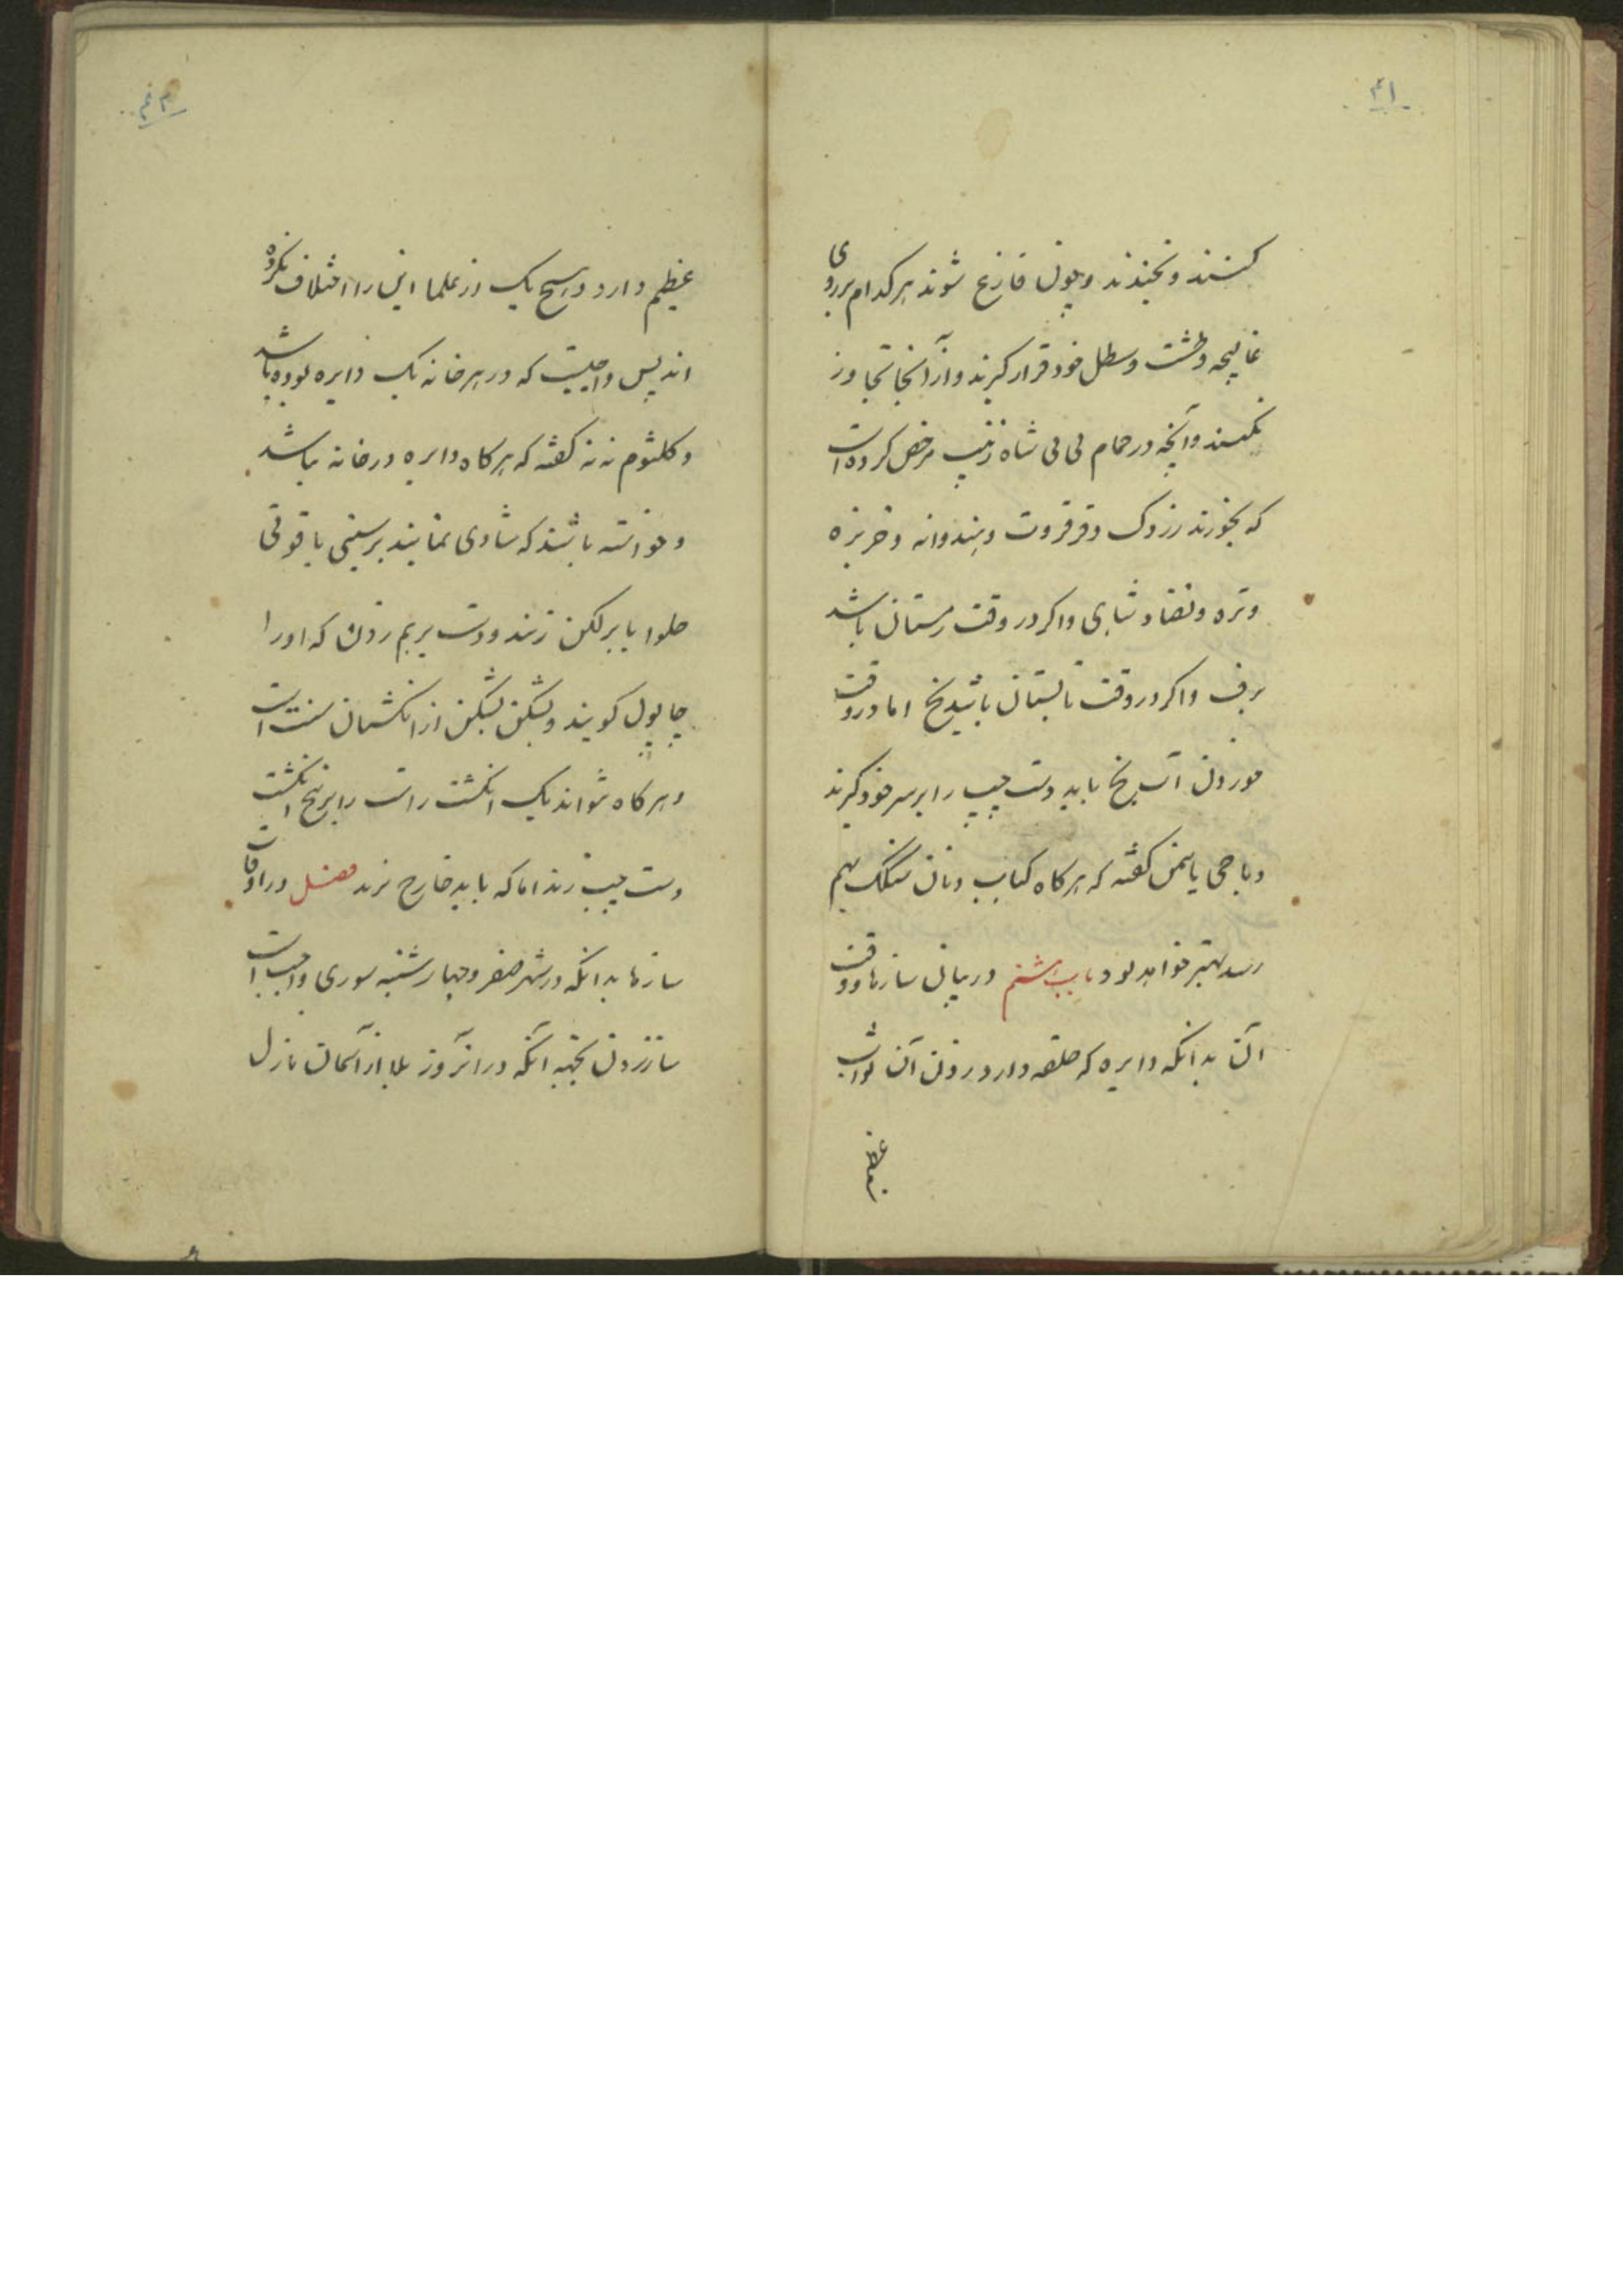 ۴۱
کنند و بخندند و چون فارغ شوند هر کدام بر روی
غالیچه و طشت و سطل خود قرار کیرند و از آنجا تجاوز
نکنند و آنچه در حمام بی بی شاه زینب مرخص کرده است
که بخورند زردک و قرقروت و هندوانه و خربزه
و تره و نعناع و شاهی و اکر در وقت زمستان باشد
برف و اکر در وقت تابستان باشد یخ اما در وقت
خوردن آب یخ باید دست چپ را بر سر خود کیرند
و باجی یاسمن کفته که هر کاه کباب و نان سنکک بهم
رسد بهتر خواهد بود باب هشتم در بیان سازها و وقت
آن بدانکه دایره که حلقه دارد زدن آن ثواب
عظیم
عظیم دارد و هیچ یک از علما این را اختلاف نکرده
اند پس واجبست که در هر خانه یک دایره بوده باشد
و کلثوم ننه کفته که هر کاه دایره در خانه نباشد
و خواسته باشند که شادی نمایند بر سینی یا قوتی
حلوا یا بر لکن زنند و دست بر هم زدن که او را
چاپول کویند و بشکن بشکن از انکشتان سنت است
و هر کاه نتواند یک انکشت راست را بر پنج انکشت
دست چپ زند اما که باید خارج نزند فصل در اوقات
سازها بدانکه در شهر صفر و چهار شنبه سوری واجب است
ساز زدن بجهة آنکه در آنروز بلا از آسمان نازل